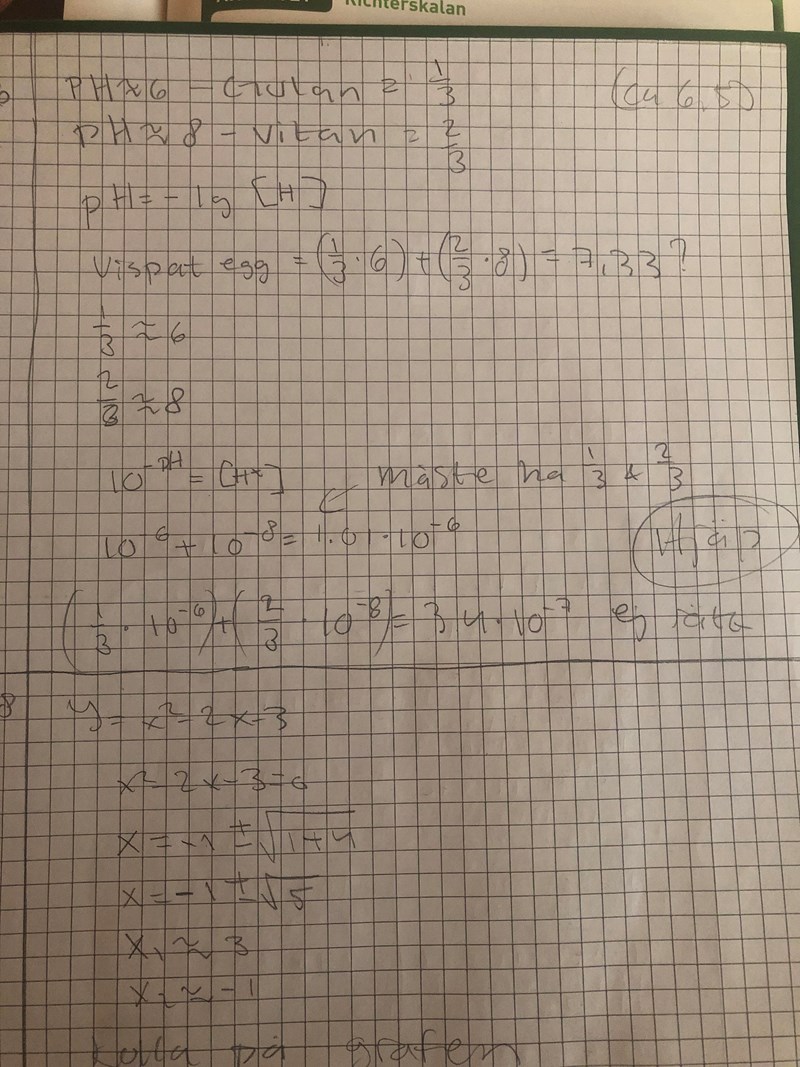 Richterskalan
pH≈6 - Gulan = 1/3 (Ca 6,5)
pH≈8 - Vitan = 2/3
pH = -lg [H]
Vispat egg = (1/3 · 6) + (2/3 · 8) = 7,33?
1/3 ≈ 6
2/3 ≈ 8
10^-pH = [H+] måste ha 1/3 & 2/3
10^-6 + 10^-8 = 1.01 · 10^-6 Hjälp
(1/3 · 10^-6) + (2/3 · 10^-8) = 3,4 · 10^-7 ej rätt
8 y = x² - 2x - 3
x² - 2x - 3 = 0
x = -1 ± √1+4
x = -1 ± √5
x₁ ≈ 3
x₂ ≈ -1
kolla på grafen